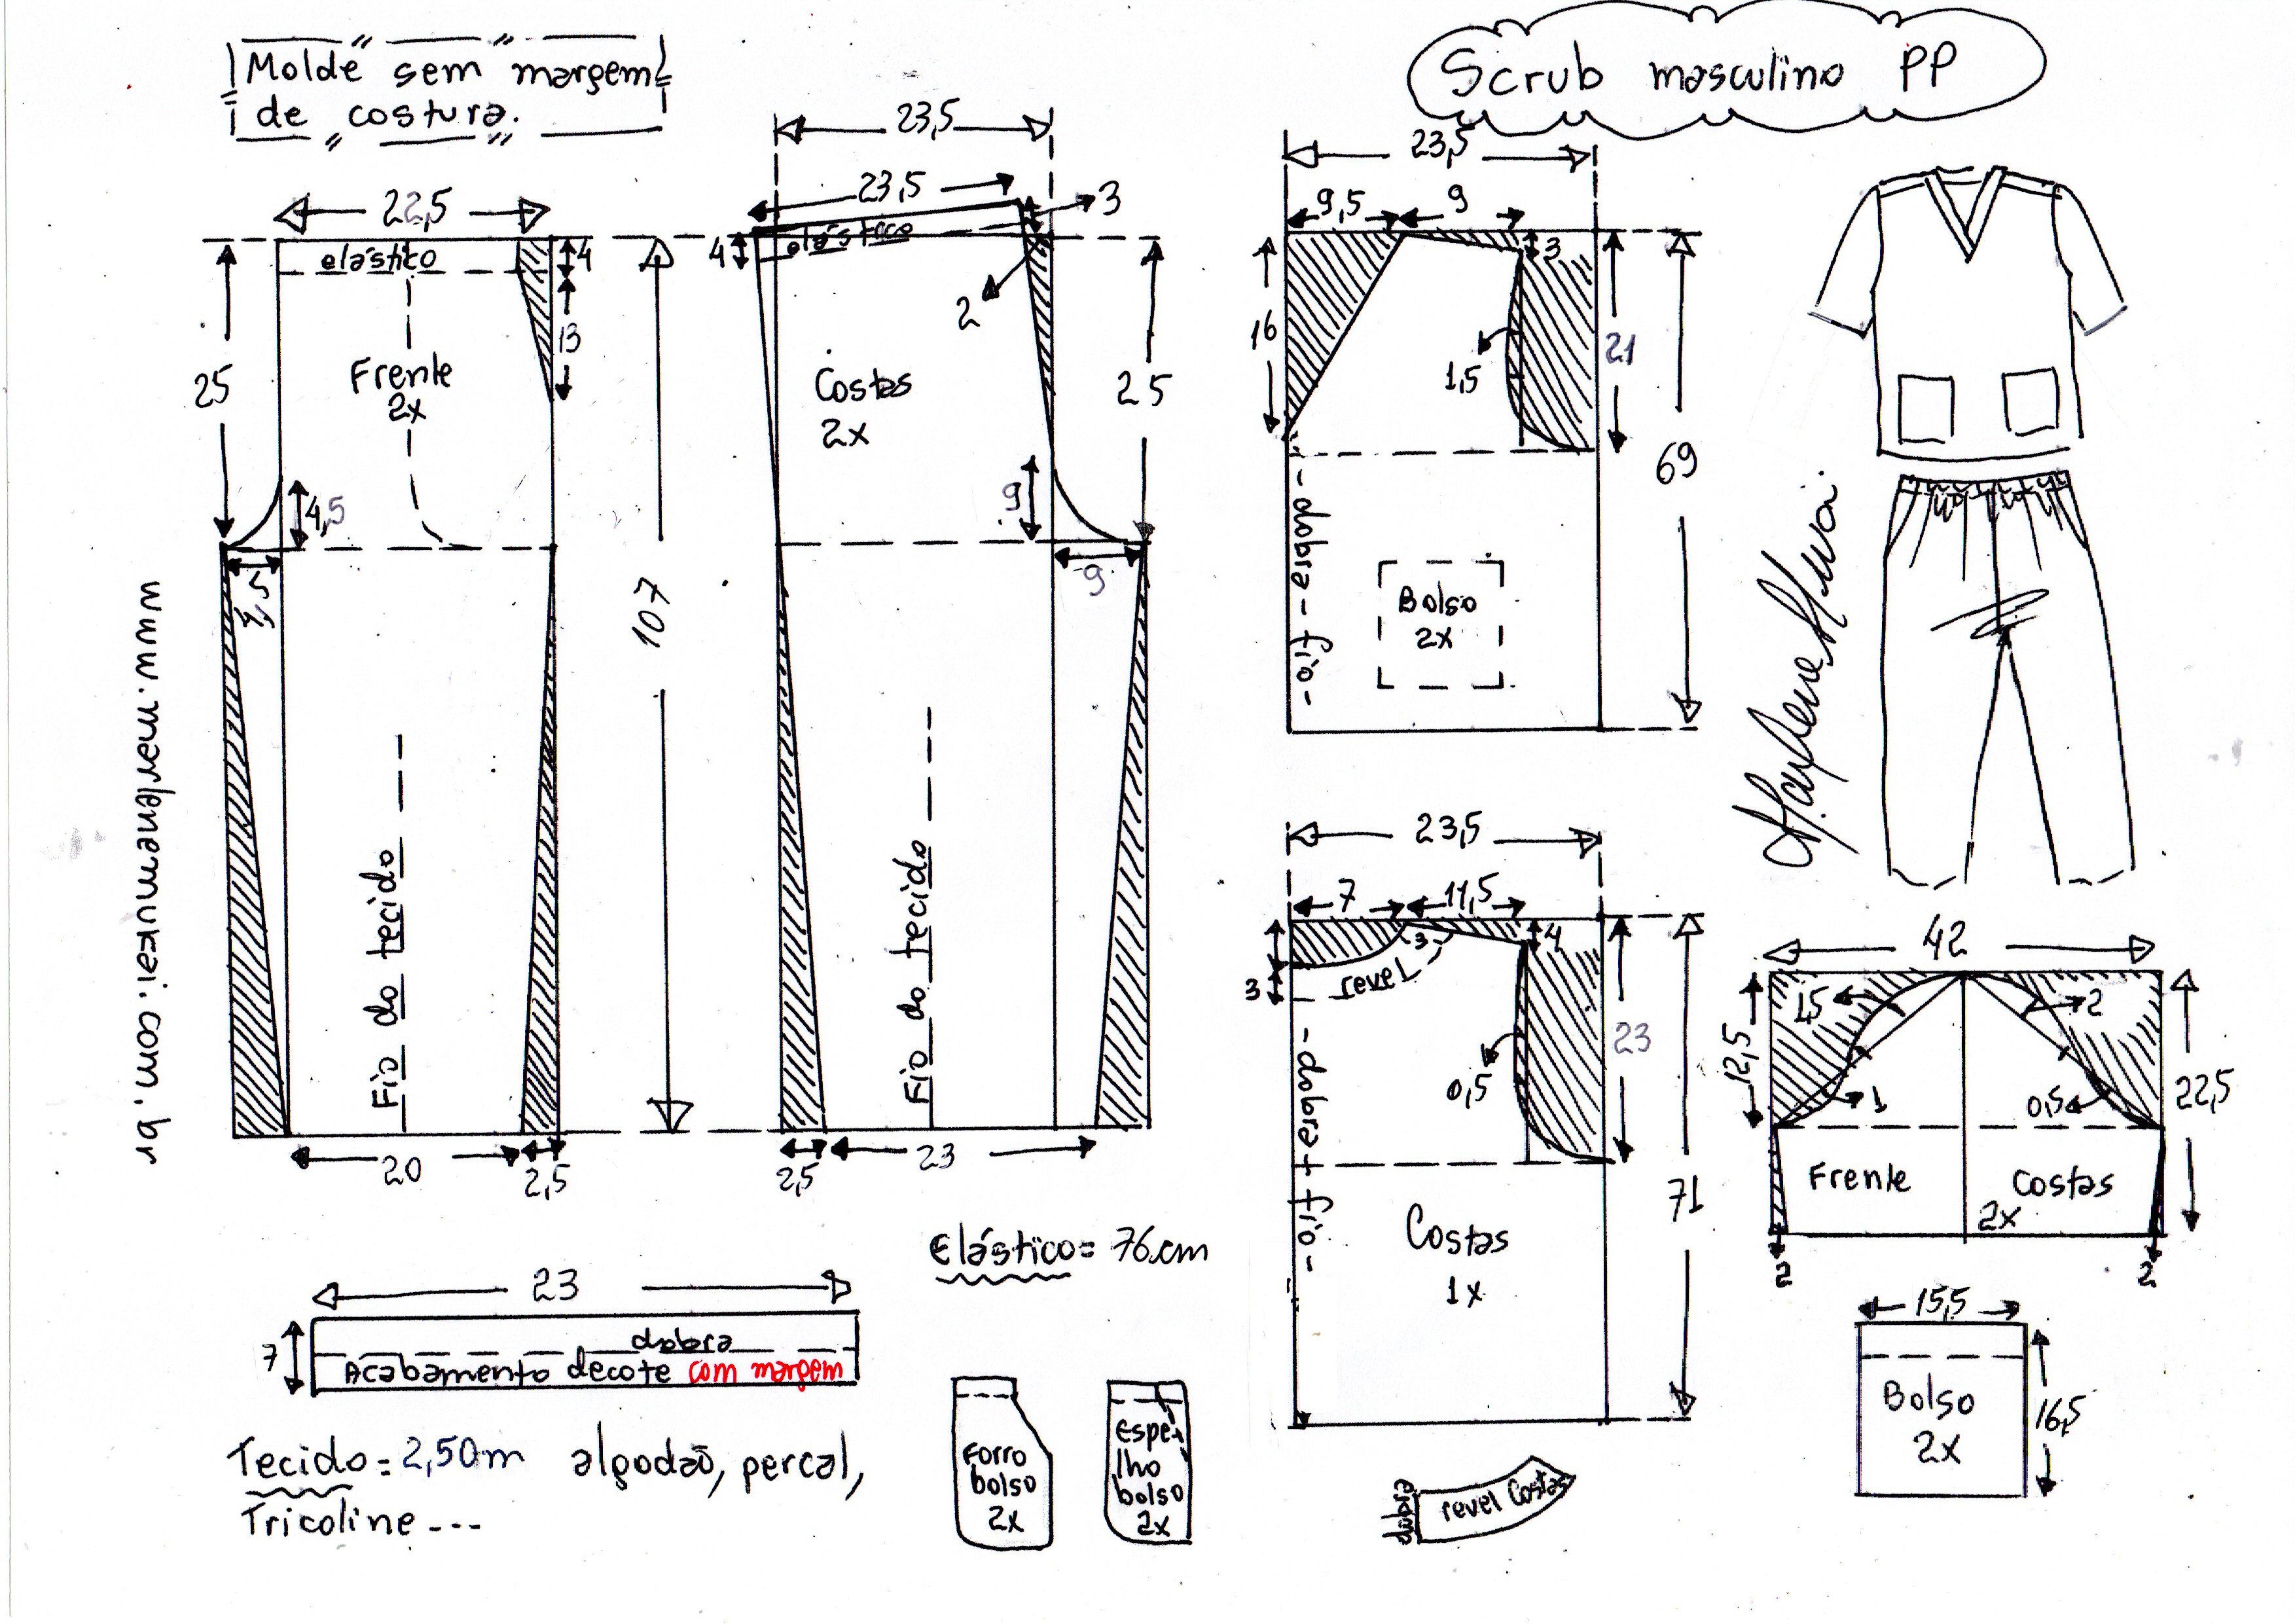 Molde sem margem
de costura.
Scrub masculino PP
22,5
elástico
4
13
25
Frente
2x
4,5
107
Fio do tecido
20
2,5
www.marlenemukai.com.br
23,5
23,5
3
4
elástico
2
Costas
2x
25
9
9
Fio do tecido
2,5
23
23,5
9,5
9
3
16
1,5
21
69
- dobra - fio -
Bolso
2x
23,5
7
11,5
3
4
3
revel
0,5
23
71
- dobra + fio -
Costas
1x
42
1,5
2
12,5
1
0,5
22,5
Frente
Costas
2x
2
2
15,5
Bolso
2x
16,5
Elástico = 76cm
23
7
dobra
Acabamento decote com margem
Tecido = 2,50m algodão, percal,
Tricoline ---
Forro
bolso
2x
Espe-
lho
bolso
2x
dobra
revel Costas